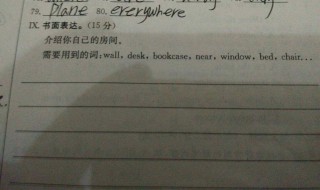 79. plane 80. everywhere
IX. 书面表达。(15 分)
介绍你自己的房间。
需要用到的词:wall, desk, bookcase, near, window, bed, chair...